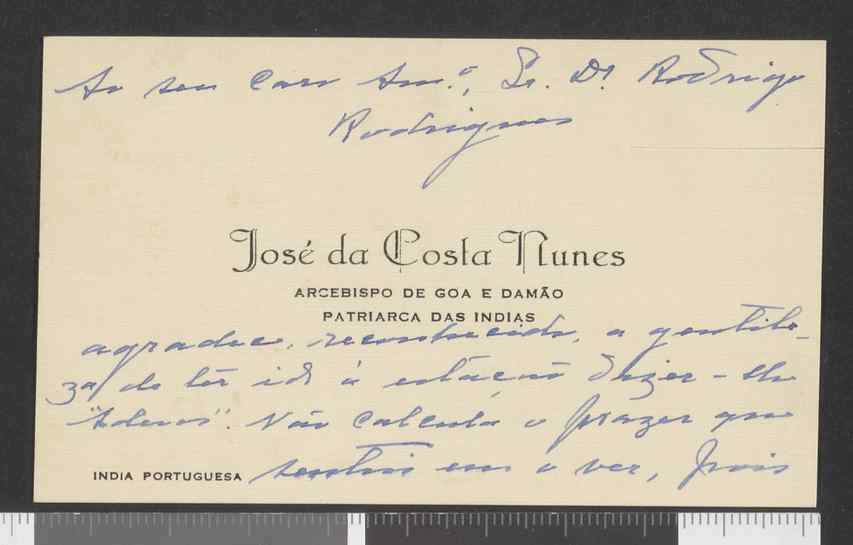 Ao seu caro Am.º, Sr. Dr. Rodrigo
Rodrigues
José da Costa Nunes
ARCEBISPO DE GOA E DAMÃO
PATRIARCA DAS INDIAS
agradece, reconhecido, a gentile-
za de têr ido à estação dizer-lhe
"Adeus". Não calcula o prazer que
INDIA PORTUGUESA sentiu em o ver, pois